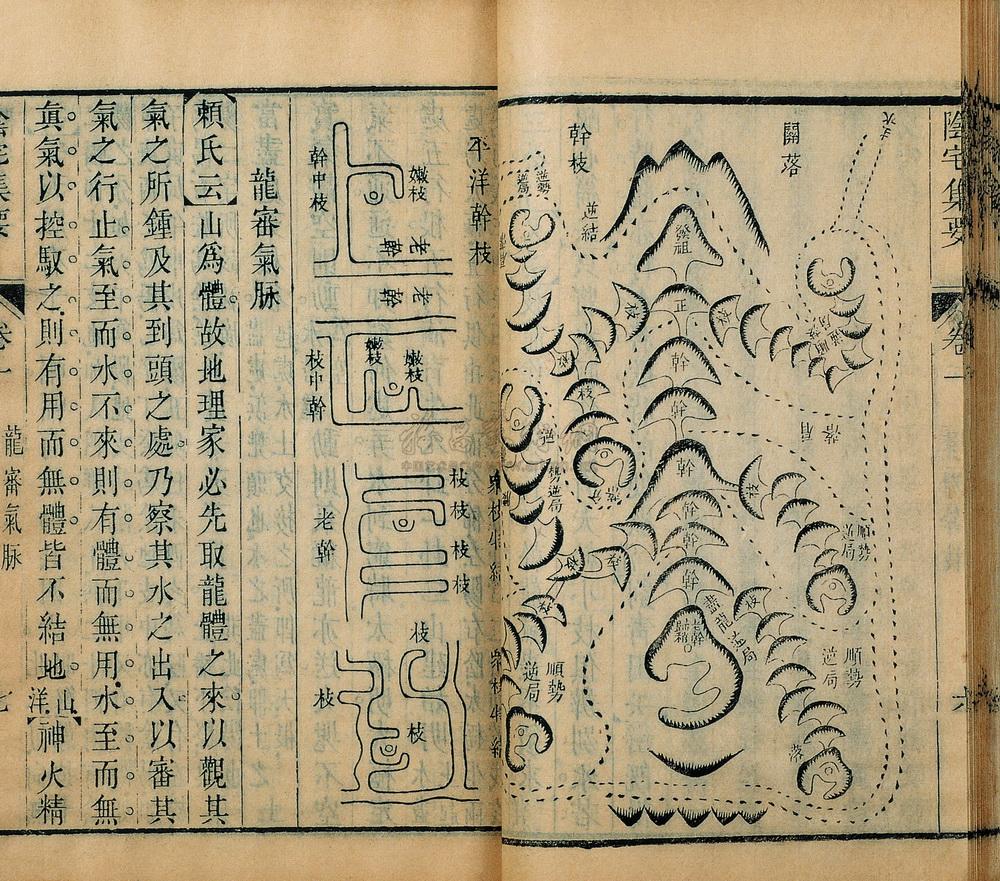 陰宅集要
卷一
六
開落
幹枝
逆結
祖
正
枝
幹
幹
枝
幹
幹
幹
幹
枝
枝
順勢
逆局
順勢
逆局
順勢
逆局
落
平洋幹枝
嫩枝
幹中枝
老幹
老幹
嫩枝
嫩枝
枝中幹
枝
枝
枝
枝
老幹
枝
枝
枝
龍審氣脉
賴氏云山爲體故地理家必先取龍體之來以觀其
氣之所鍾及其到頭之處乃察其水之出入以審其
氣之行止氣至而水不來則有體而無用水至而無
眞氣以控馭之則有用而無體皆不結地山洋神火精
龍審氣脉
七